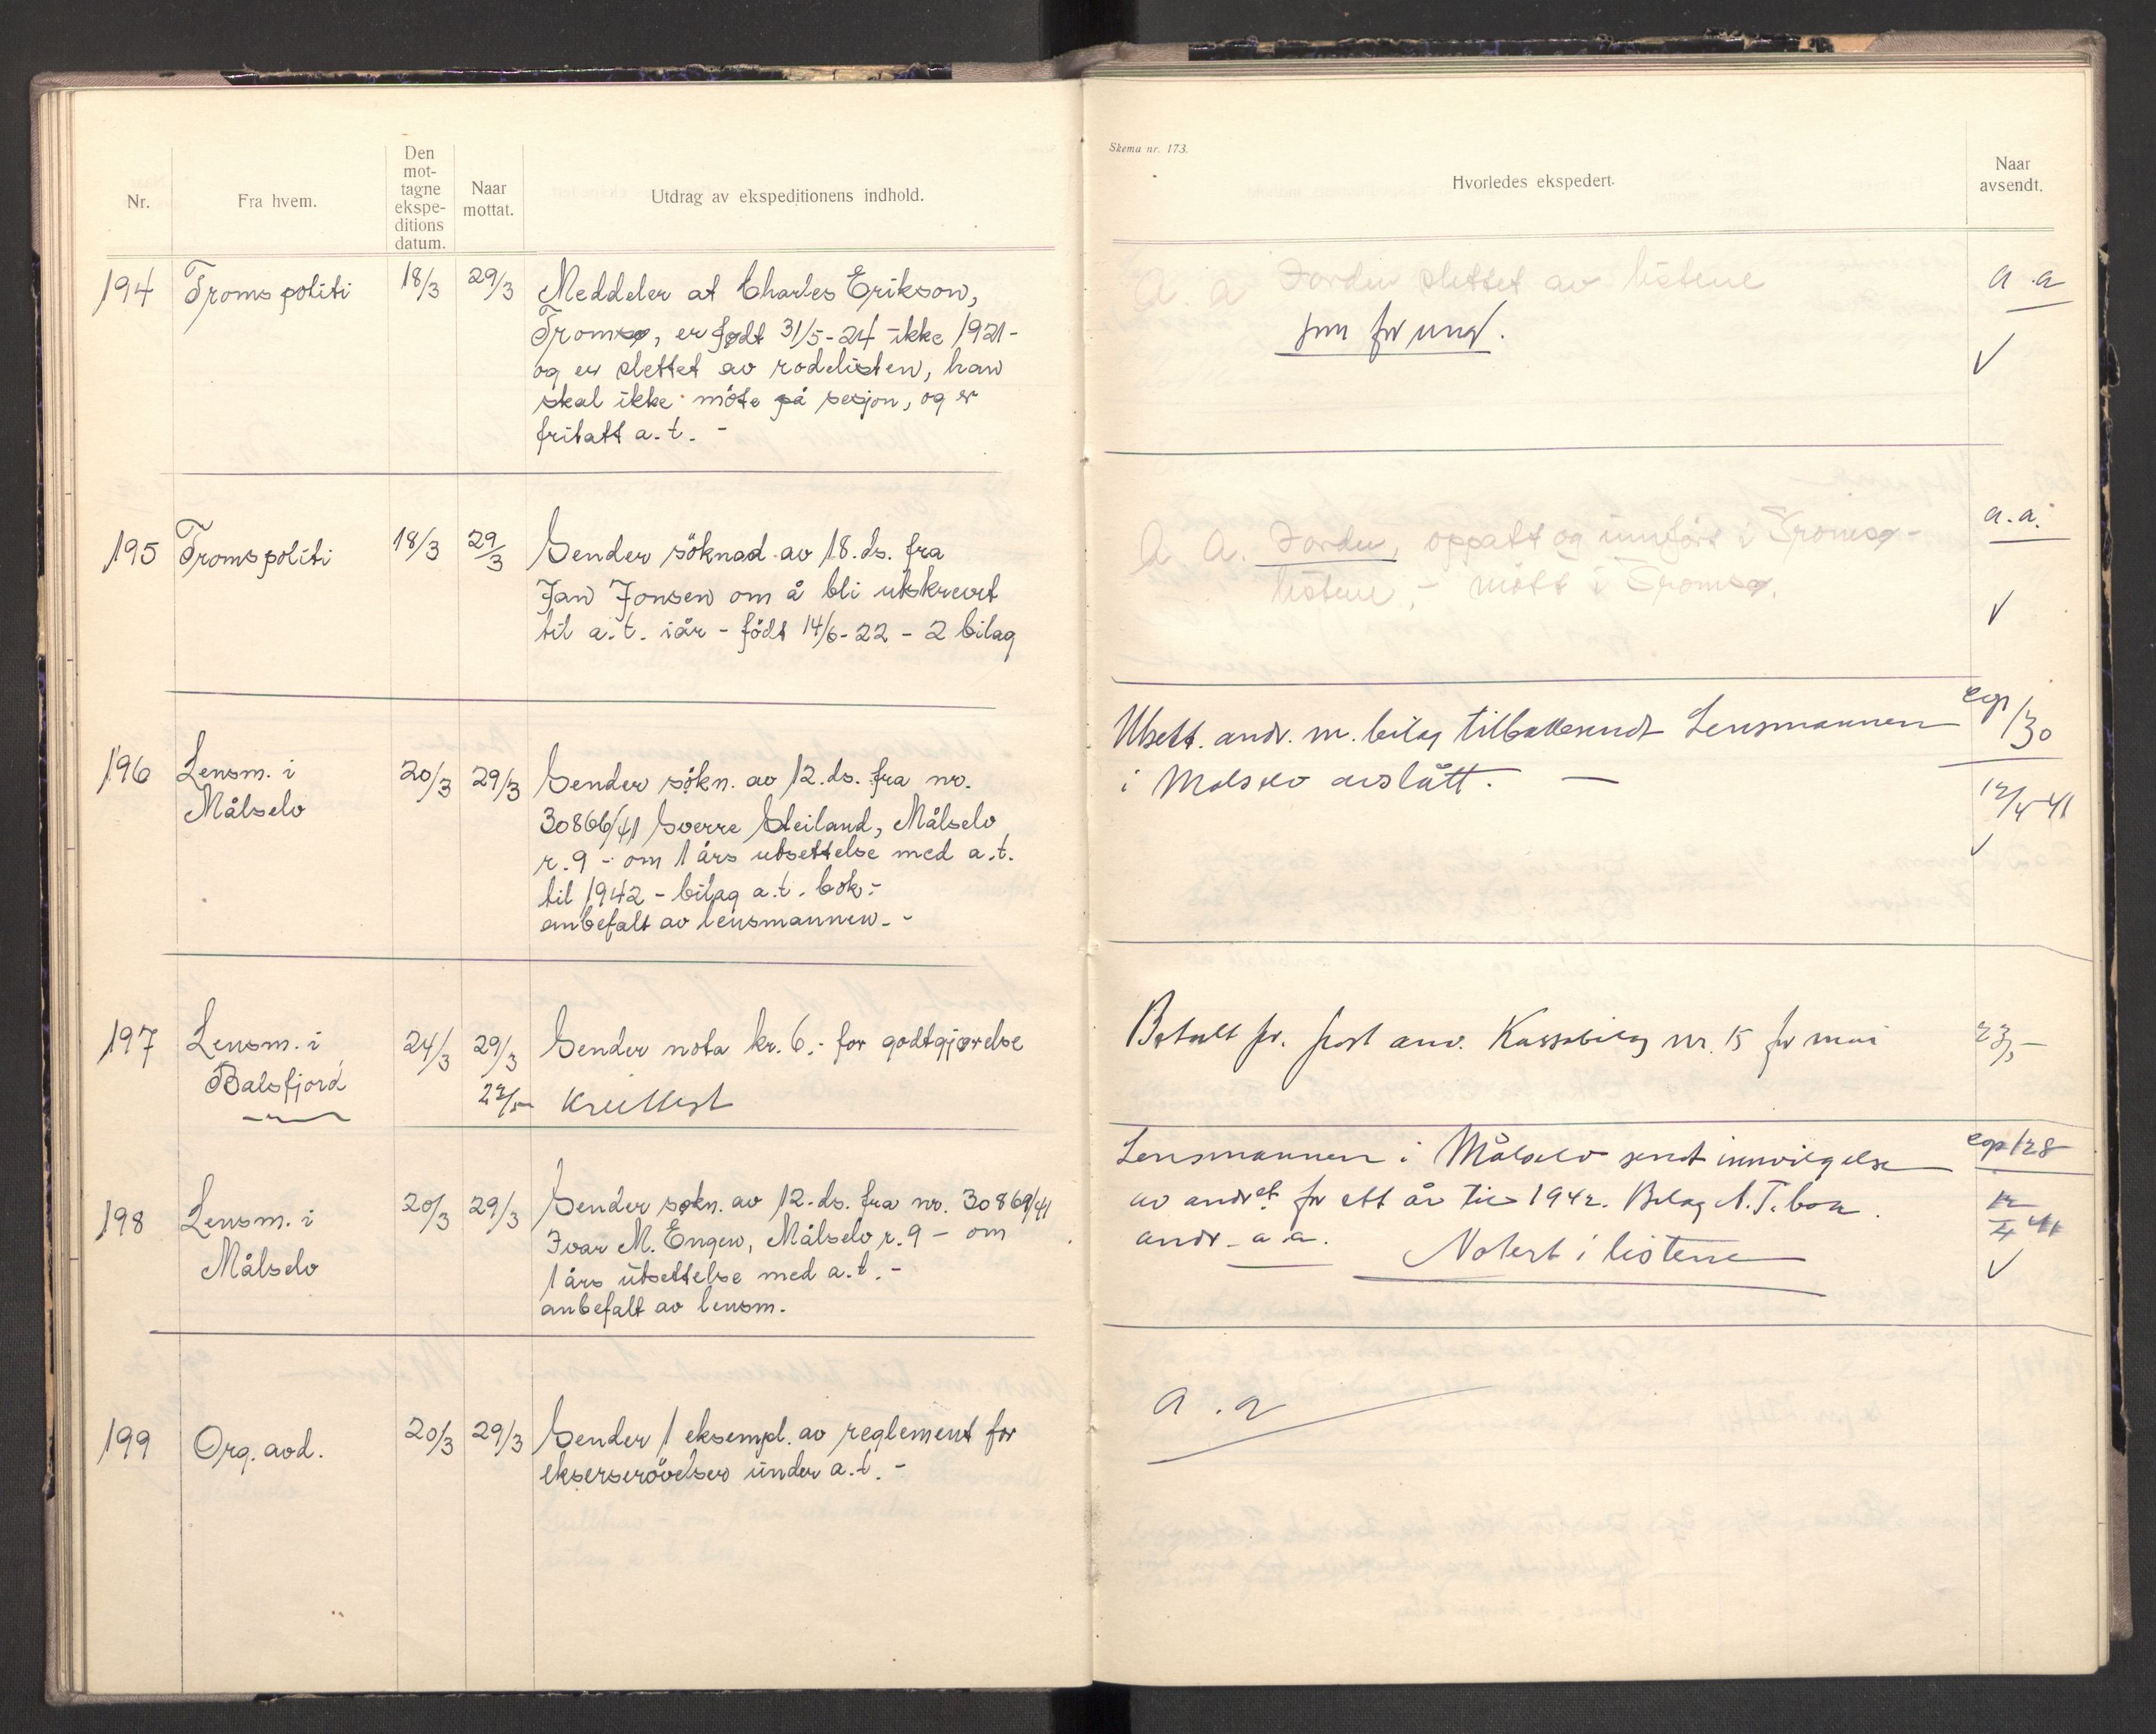 Nr.
Fra hvem.
Den
mot-
tagne
ekspe-
ditions
datum.
Naar
mottat.
Utdrag av ekspeditionens indhold.
194 Troms politi 18/3 29/3 Meddeler at Charles Erikson,
Tromsø, er født 31/5-24 ikke 1921-
og er slettet av rodelisten, han
skal ikke møte på sesjon, og er
fritatt a.t. -
195 Troms politi 18/3 29/3 Sender söknad av 18. ds. fra
Jan Jonsen om å bli utskrevet
til a.t. iår - födt 14/6-22 - 2 bilag
196 Lensm. i 20/3 29/3 Sender søkn. av 12. ds. fra nr.
Målselv
30866/41 Sverre Steiland, Målselv
r. 9 - om 1 års utsettelse med a.t.
til 1942 - bilag a.t. bok -
anbefalt av lensmannen. -
197 Lensm. i 24/3 29/3 Sender nota kr. 6,- for godtgjørelse
Balsfjord
198 Lensm. i 20/3 29/3 Sender søkn. av 12. ds. fra nr. 30869/41
Målselv
Ivar M. Engen, Målselv r. 9 - om
1 års utsettelse med a.t. -
anbefalt av lensm.
199 Org. avd. 20/3 29/3 Sender 1 eksempl. av reglement for
ekserserövelser under a.t. -
Skema nr. 173.
Hvorledes ekspedert.
Naar
avsendt.
A. a Jorden slettet av listene a.a
som for ung. ✓
A. A. Jorden, oppatt og innført i Tromsø- a.a.
listene, - møtt i Tromsø. ✓
Utsett. andr. m. bilag tilbakesendt Lensmannen egp/30
i Målselv avslått. - 12/4 41
✓
Betalt pr. post anv. Kassabilag nr. 15 for mai 23/5
Lensmannen i Målselv sendt innvilgelse egp 128
av andr. et for ett år til 1942. Bilag A.T. bok.
andr. a a. Notert i listene ✓
a.a